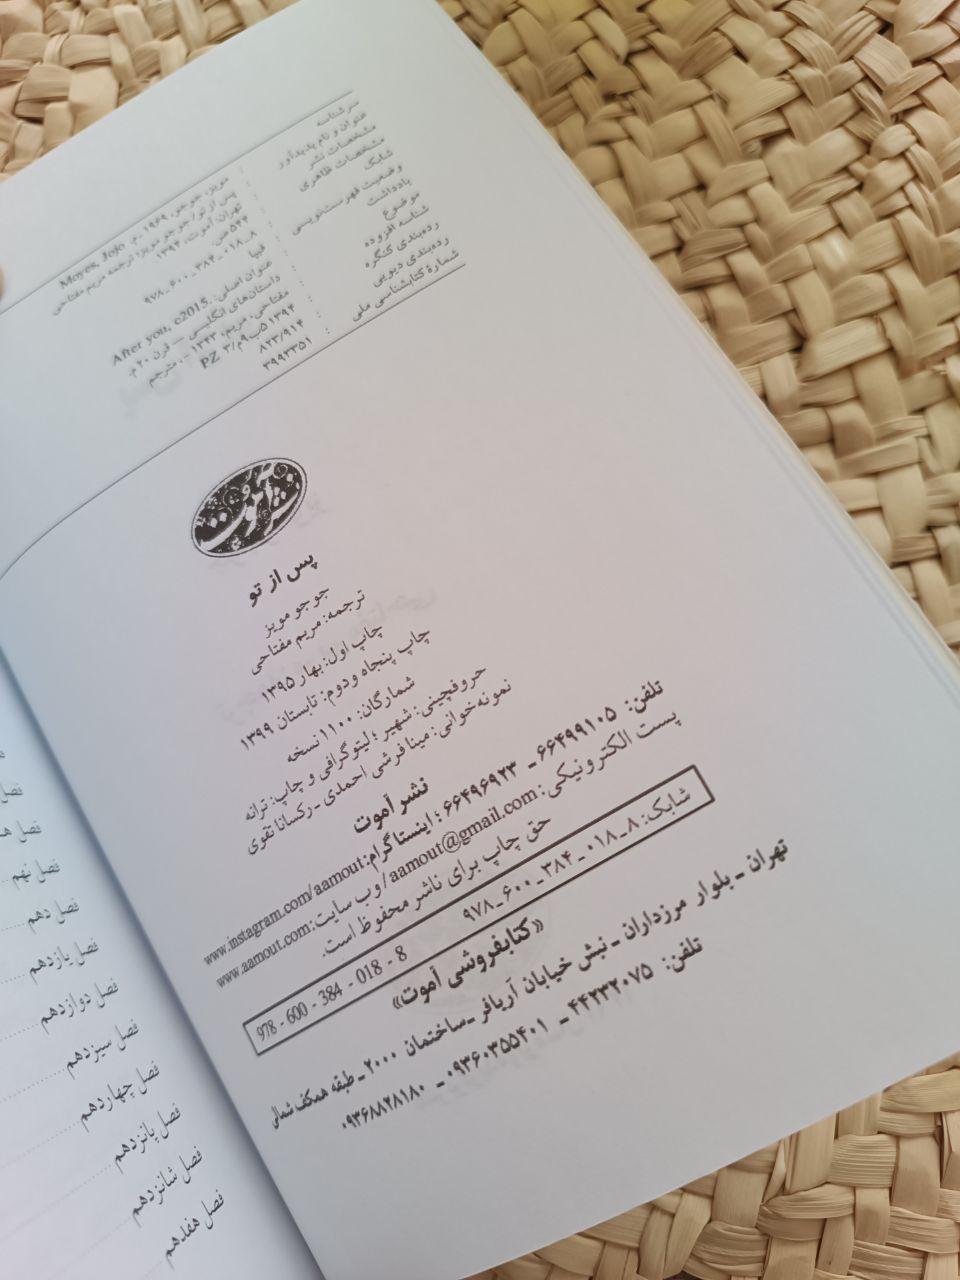 سرشناسه : مویز، جوجو، ۱۹۶۹ م. Moyes, Jojo
عنوان و نام پدیدآور : پس از تو/ جوجو مویز؛ ترجمه مریم مفتاحی
مشخصات نشر : تهران: آموت، ۱۳۹۴
مشخصات ظاهری : ۵۴۴ ص.
شابک : ۹۷۸_۶۰۰_۳۸۴_۰۱۸_۸
وضعیت فهرست‌نویسی : فیپا
یادداشت : عنوان اصلی: After you, c2015.
موضوع : داستان‌های انگلیسی — قرن ۲۰ م.
شناسه افزوده : مفتاحی، مریم، ۱۳۴۳ -، مترجم
رده‌بندی کنگره : ۱۳۹۴ ۵پ۹م/ PZ ۳
رده‌بندی دیویی : ۸۲۳/۹۱۴
شمارهٔ کتابشناسی ملی : ۳۹۹۲۳۵۱
نشر آموت
پس از تو
جوجو مویز
ترجمه: مریم مفتاحی
چاپ اول: بهار ۱۳۹۵
چاپ پنجاه و دوم: تابستان ۱۳۹۹
شمارگان: ۱۱۰۰ نسخه
حروفچینی: شهیر ؛ لیتوگرافی و چاپ: ترانه
نمونه‌خوانی: مینا فرشی احمدی ـ رکسانا تقوی
نشر آموت
تلفن: ۶۶۴۹۹۱۰۵ ـ ۶۶۴۹۶۹۲۳ ؛ اینستاگرام: www.instagram.com/aamout
پست الکترونیکی: aamout@gmail.com / وب سایت: www.aamout.com
حق چاپ برای ناشر محفوظ است.
شابک: ۸_۰۱۸_۳۸۴_۶۰۰_۹۷۸ 978 - 600 - 384 - 018 - 8
«کتابفروشی آموت»
تهران ـ بلوار مرزداران ـ نبش خیابان آریافر ـ ساختمان ۲۰۰۰ ـ طبقه همکف شمالی
تلفن: ۴۴۲۳۲۰۷۵ ـ ۰۹۳۶۰۳۵۵۴۰۱ ـ ۰۹۳۶۸۸۲۸۱۸۰
فصل
فصل
فصل نهم
فصل دهم
فصل یازدهم
فصل دوازدهم
فصل سیزدهم
فصل چهاردهم
فصل پانزدهم
فصل شانزدهم
فصل هفدهم